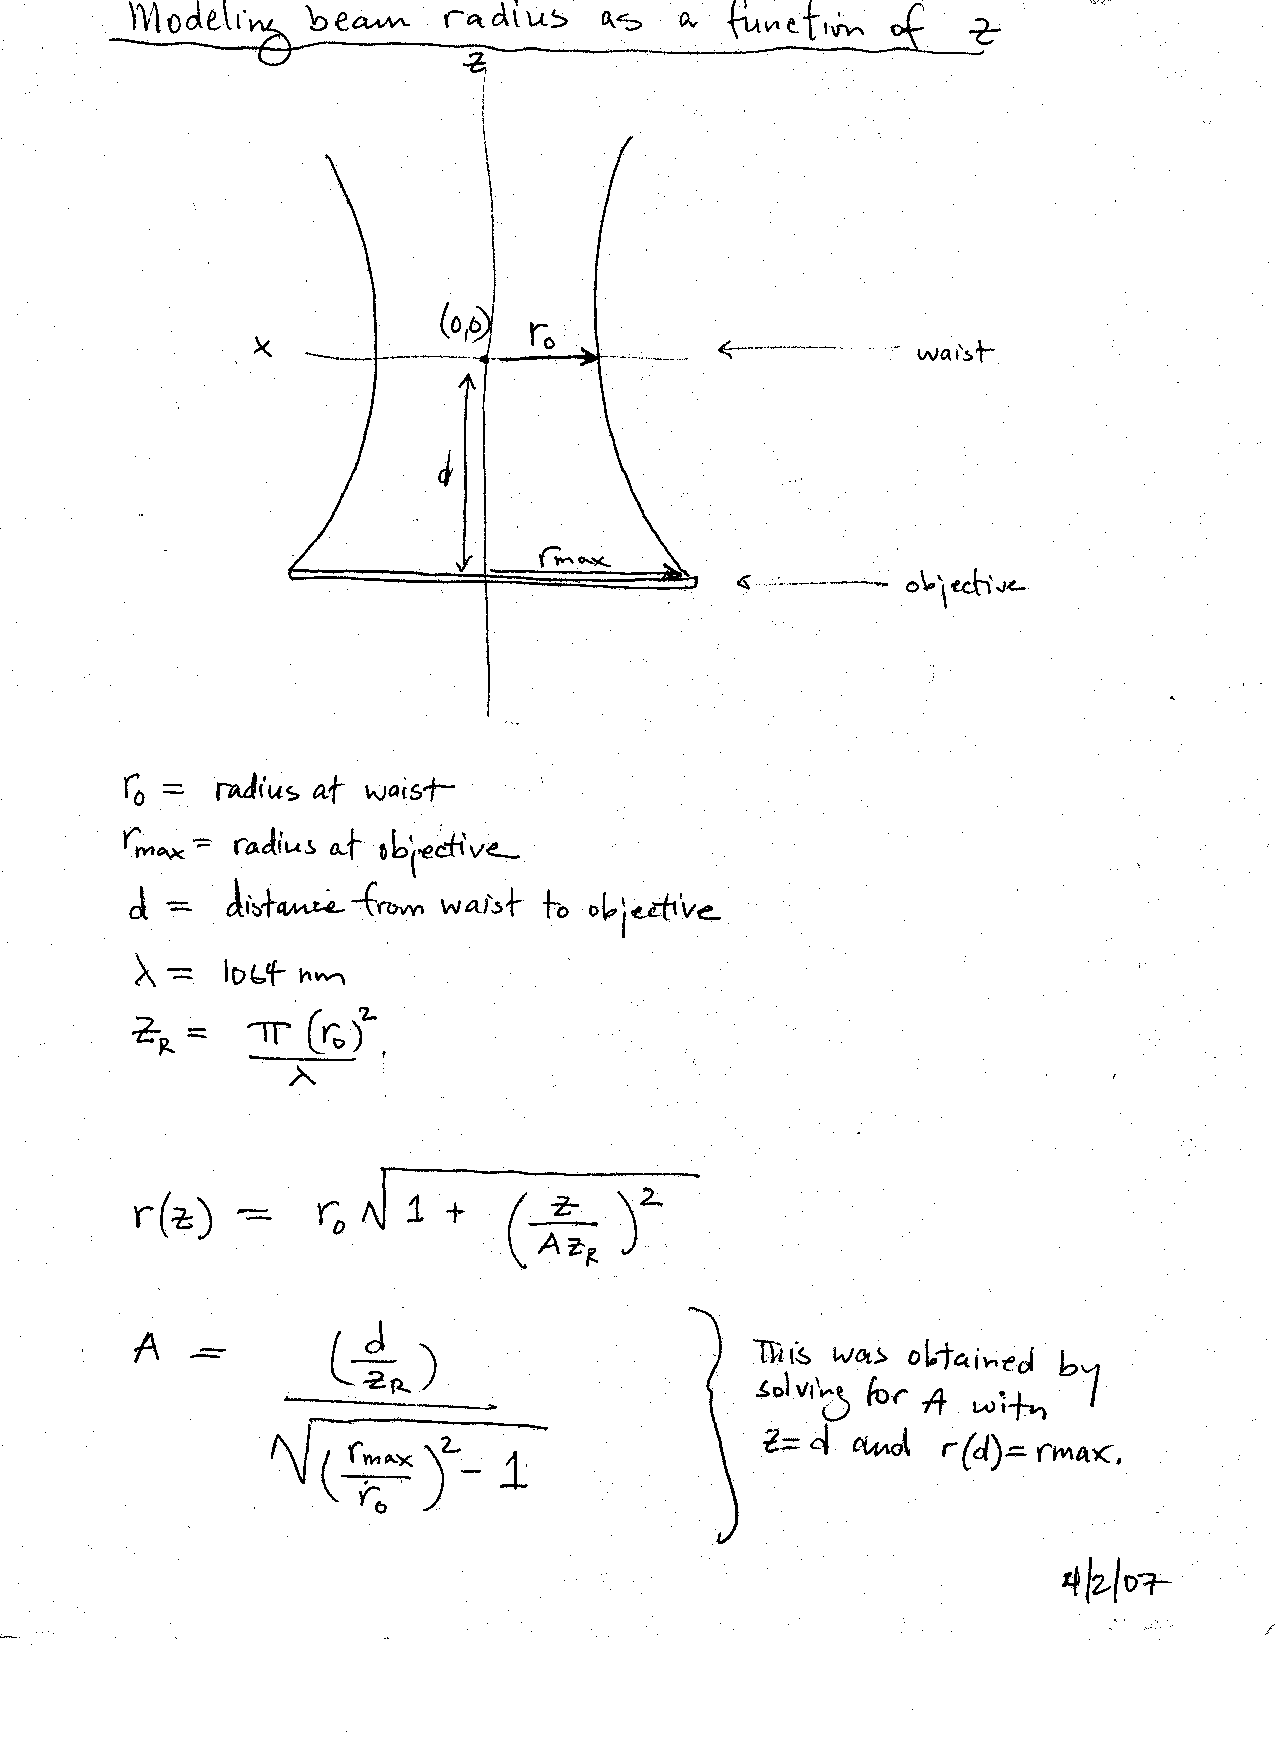 Modeling beam radius as a function of z
z
(0,0)
r₀
x
waist
d
rmax
objective
r₀ = radius at waist
rmax = radius at objective
d = distance from waist to objective
λ = 1064 nm
z_R = π (r₀)² / λ
r(z) = r₀ √(1 + (z / A z_R)²)
A = (d / z_R) / √((rmax / r₀)² - 1)
This was obtained by
solving for A with
z = d and r(d) = rmax.
4/2/07